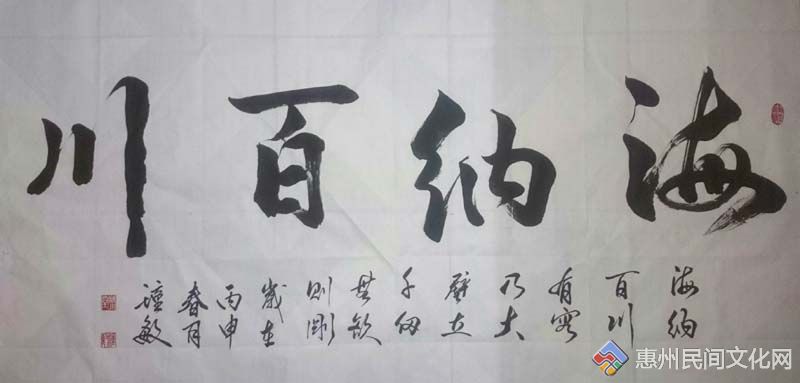 海纳百川
海纳
百川
有容
乃大
壁立
千仞
無欲
则刚
歲在
丙申
春月
敏
惠州民间文化网